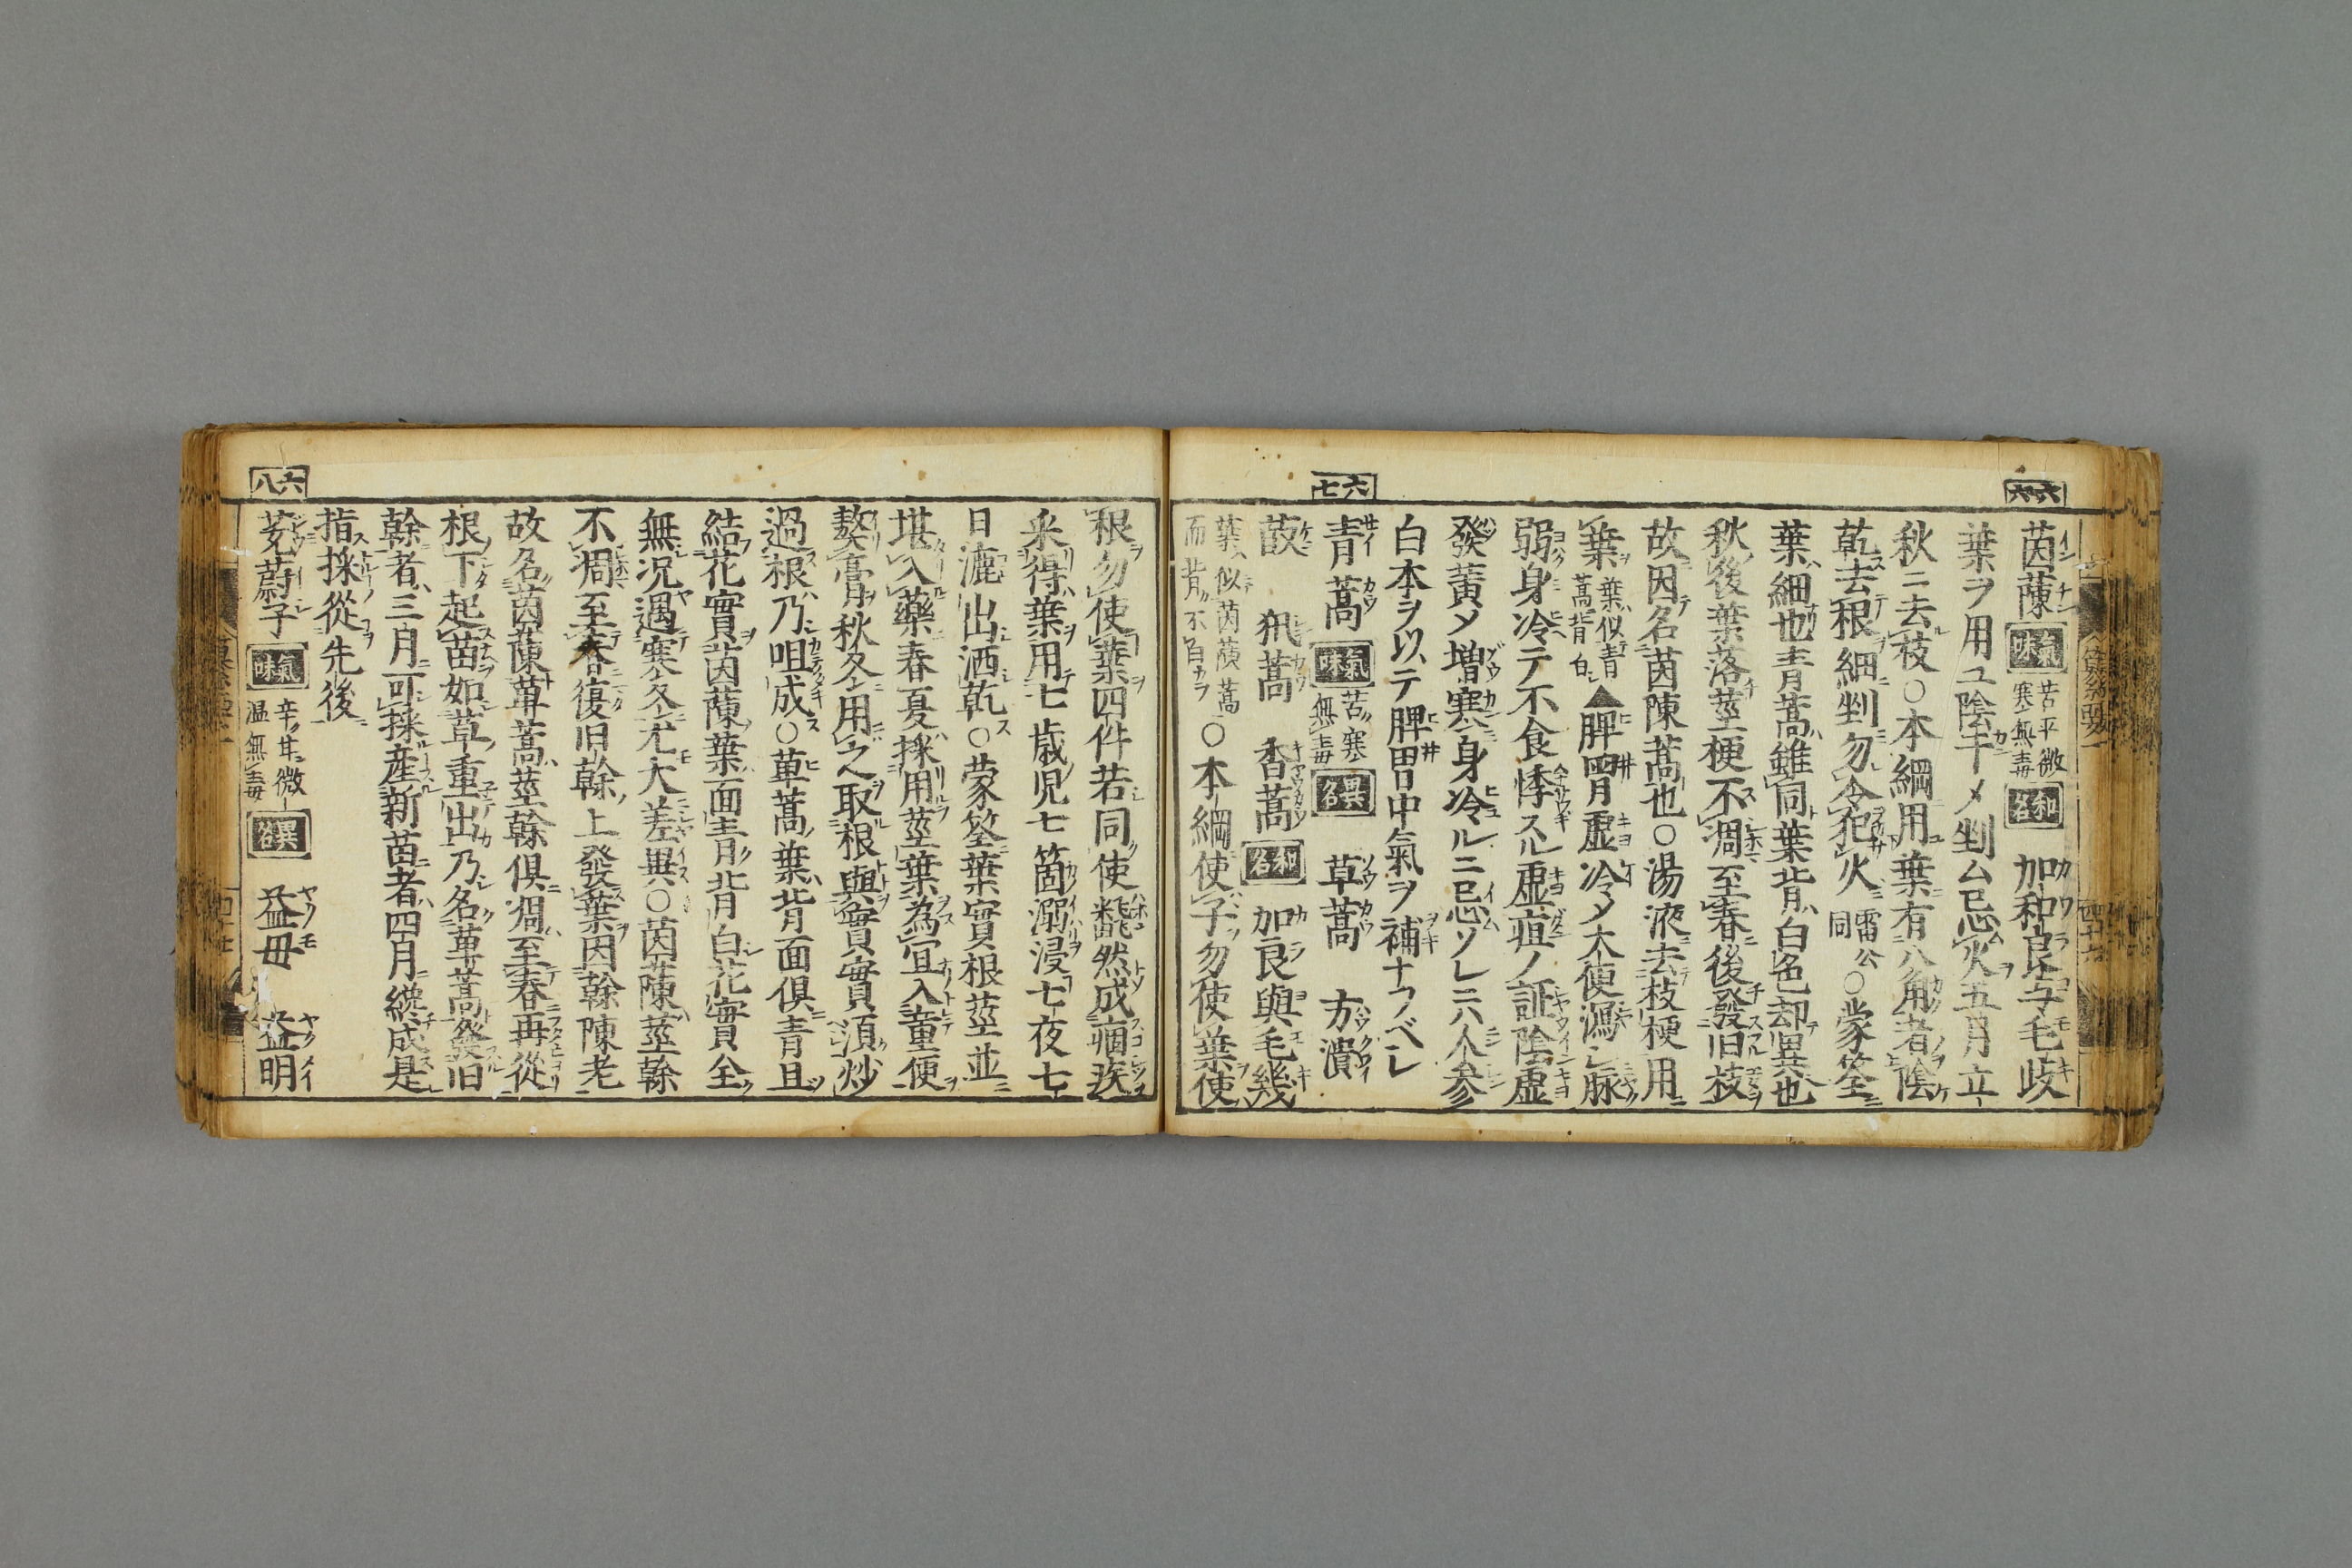 六六
茵蔯 氣味 苦平微寒無毒 和名 加和良与毛岐
葉ヲ用ユ陰干〆剉ム忌火五月立
秋ニ去枝○本綱用葉有八角者陰
乾去根細剉勿令犯火 雷公同 ○蒙筌
葉細也青蒿雖同葉背白色却異也
秋後葉落莖梗不凋至春後發旧枝
故因名茵陳蒿也○湯液去枝梗用
葉 葉似青蒿背白 ▲脾胃虚冷〆大便瀉シ脉
弱身冷テ不食悸スル虚疸ノ証陰虚
發黄〆増寒身冷ルニ忌ソレニ六人参
白本ヲ以テ脾胃中氣ヲ補ナフベシ
六七
青蒿 氣味 苦寒無毒 異名 草蒿 方潰
菣 𤝞蒿 香蒿 和名 加良與毛幾
葉似茵蔯蒿而背不白カラ ○本綱使子勿使葉使
根勿使葉四件若同使翻然成痼疾
采得葉用七歳児七箇溺浸七夜七
日漉出洒乾○蒙筌葉實根莖並
堪入藥春夏採用莖葉為宜入童便
熬膏秋冬用之取根與實實須炒
過根乃咀成○草蒿葉背面俱青且
結花實茵蔯葉面青背白花實全
無况遇寒冬尤大差異○茵蔯莖幹
不凋至春復旧幹上發葉因幹陳老
故名茵蔯草蒿莖幹俱凋至春再從
根下起苗如草重出乃名草蒿發旧
幹者三月可採産新苗者四月纔成是
指採從先後
六八
茺蔚子 氣味 辛甘微温無毒 異名 益毋 益明